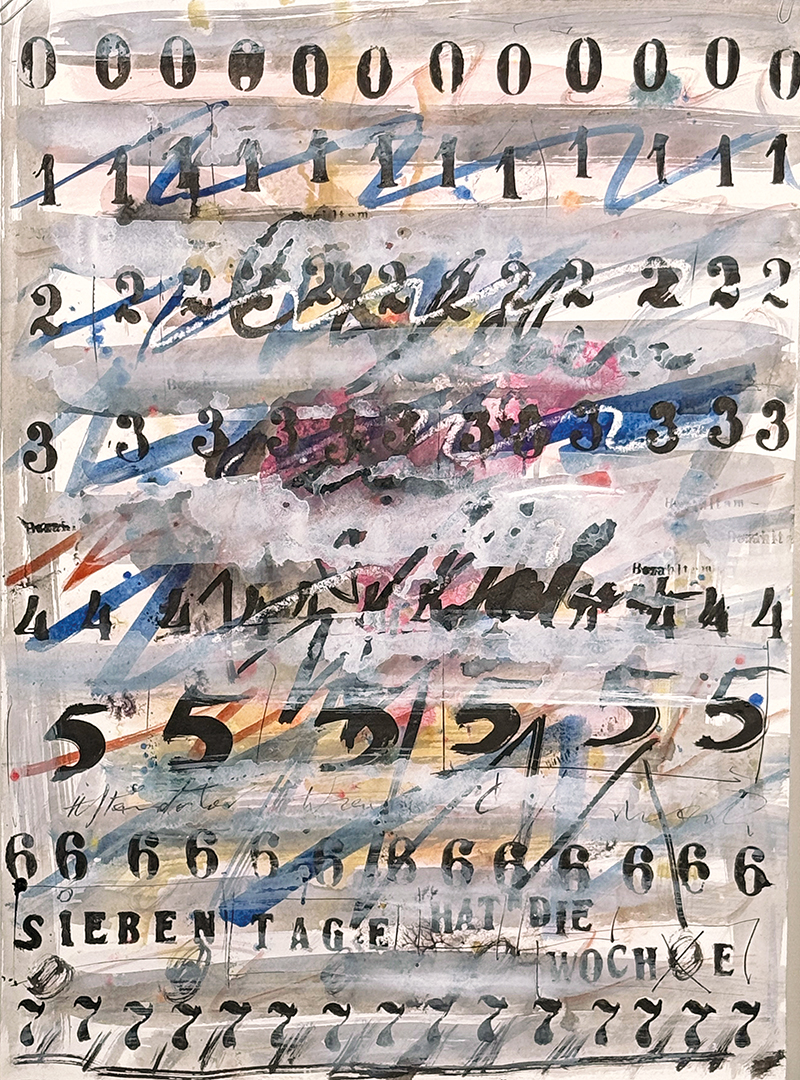 0 0 0 0 0 0 0 0 0 0 0 0
1 1 1 1 1 1 1 1 1 1 1 1
Bezahlt am
2 2 2 2 2 2 2 2 2 2 2 2
3 3 3 3 3 3 3 3 3 3 3 3
Bezahlt am
Bezahlt am
4 4 4 4 4 4 4 4
5 5 5 5 5 5
6 6 6 6 6 6 6 6 6 6 6 6 6
SIEBEN TAGE HAT DIE
WOCHE
7 7 7 7 7 7 7 7 7 7 7 7 7 7 7